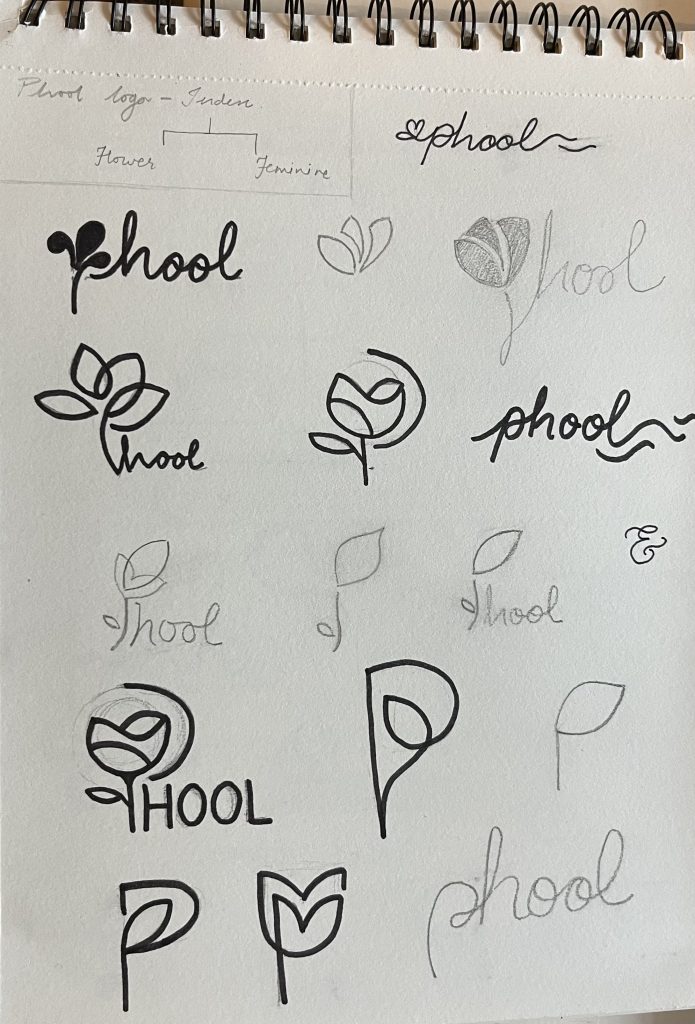 Phool logo - Index.
Flower Feminine
phool
phool
hool
hool
phool
hool
hool
&
PHOOL
P
P
P
phool